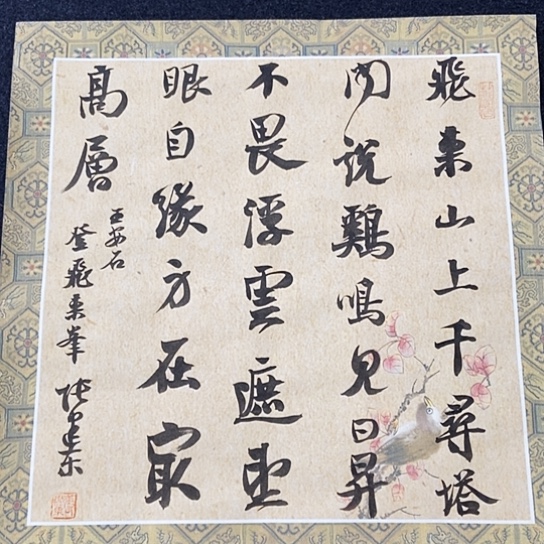 飛來山上千尋塔
聞説鷄鳴見日昇
不畏浮雲遮望
眼自緣身在最
高層
王安石
登飛來峯